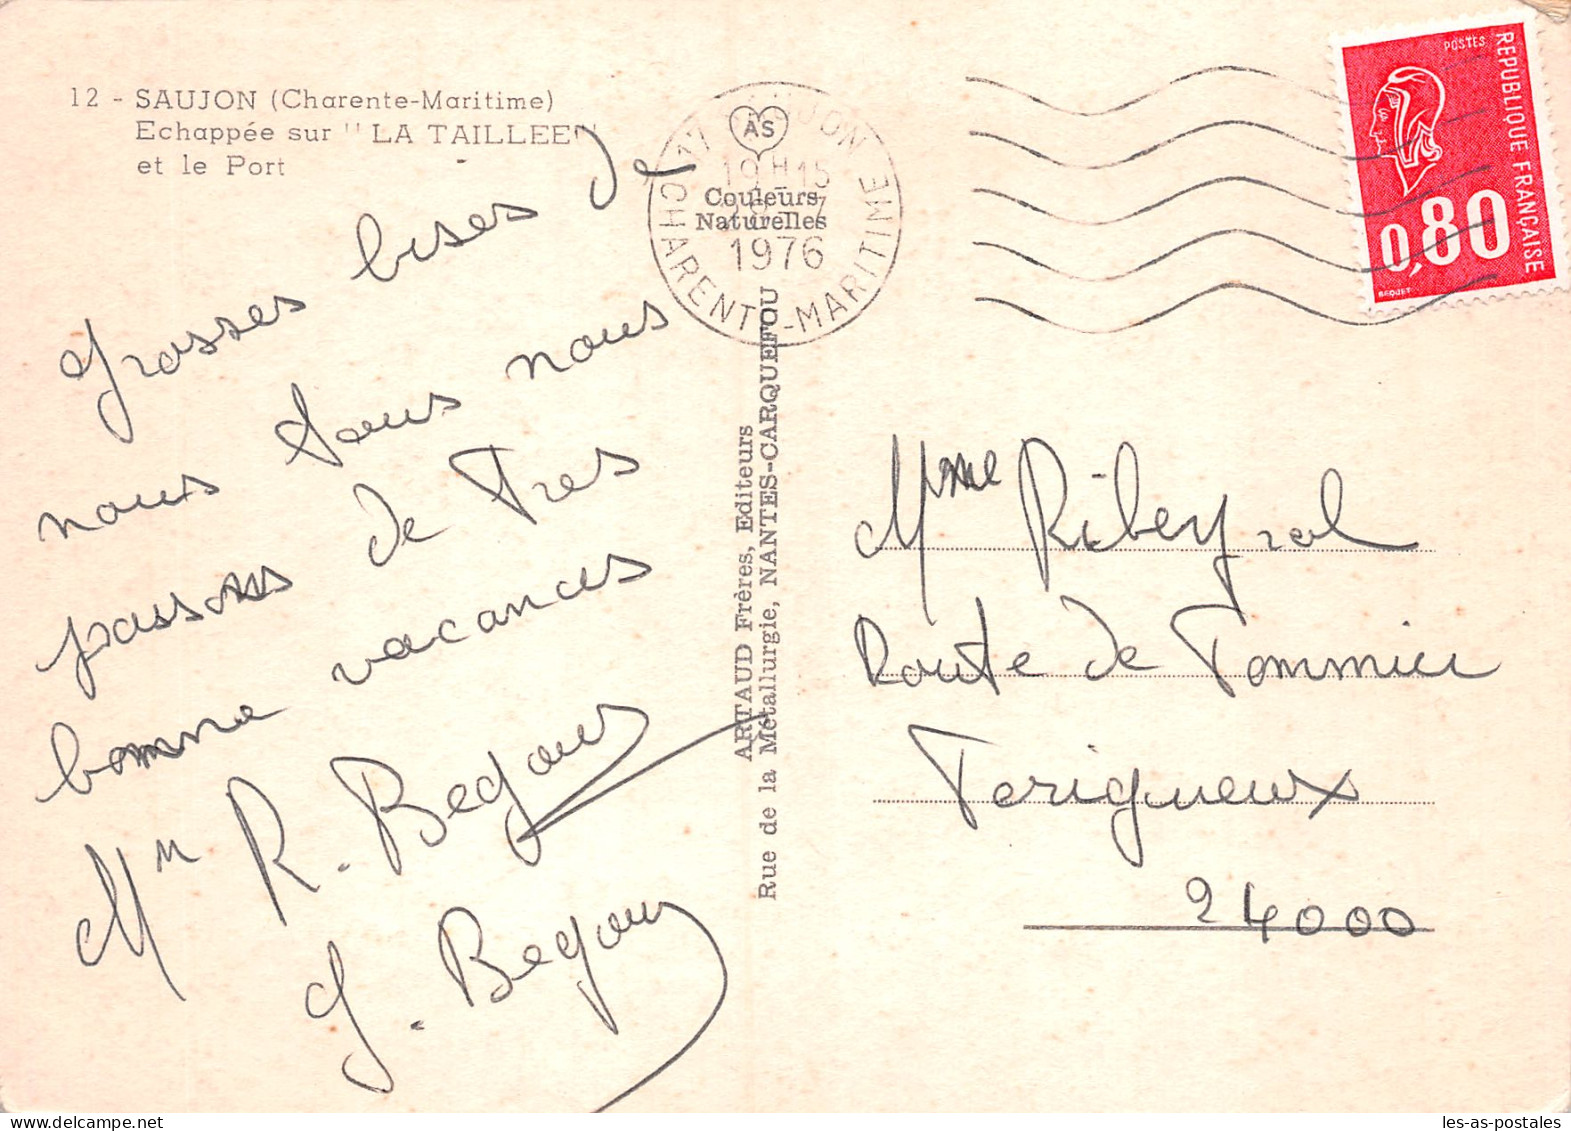 12 - SAUJON (Charente-Maritime)
Echappée sur "LA TAILLEE"
et le Port
Grosses bises de
nous tous nous
passons de Tres
bonne vacances
Mr R. Begous
J. Begous
AS
Couleurs
Naturelles
17 SAUJON
19H15
1976
CHARENTE-MARITIME
ARTAUD Frères, Editeurs
Rue de la Métallurgie, NANTES-CARQUEFOU
POSTES
REPUBLIQUE FRANÇAISE
0,80
BEQUET
Mme Ribeyrol
Route de Pommier
Perigueux
24000
les-as-postales